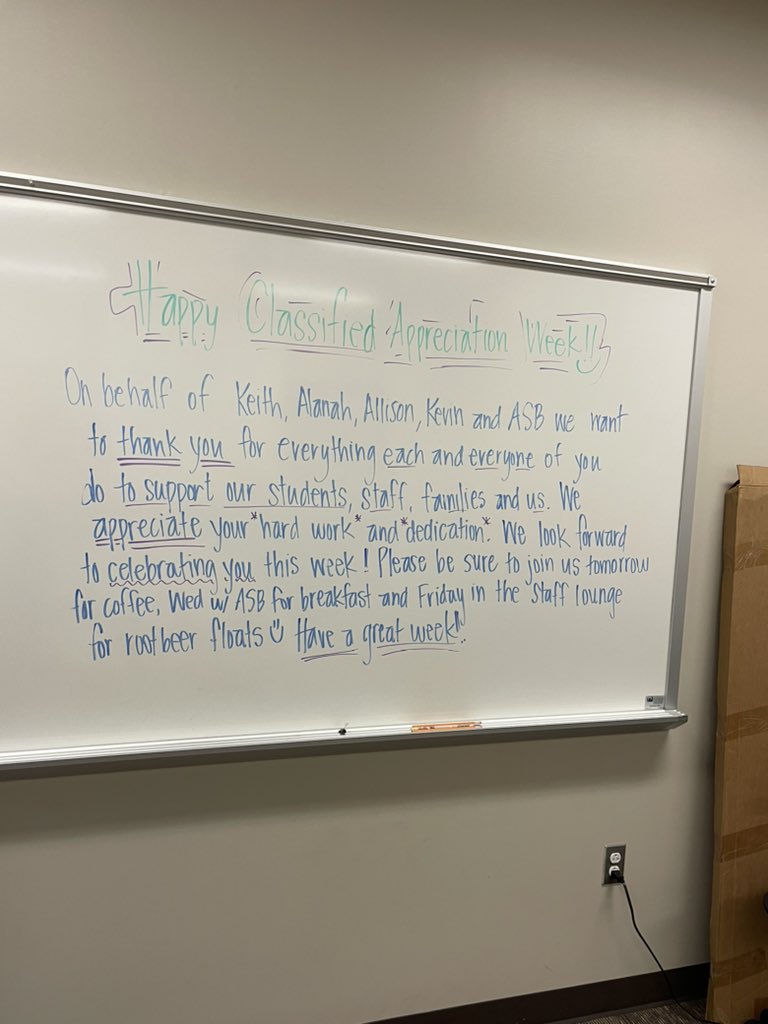 Happy Classified Appreciation Week!!
On behalf of Keith, Alanah, Allison, Kevin and ASB we want
to thank you for everything each and everyone of you
do to support our students, staff, families and us. We
appreciate your *hard work* and *dedication*. We look forward
to celebrating you this week! Please be sure to join us tomorrow
for coffee, Wed w/ ASB for breakfast and Friday in the staff lounge
for rootbeer floats Have a great week!!